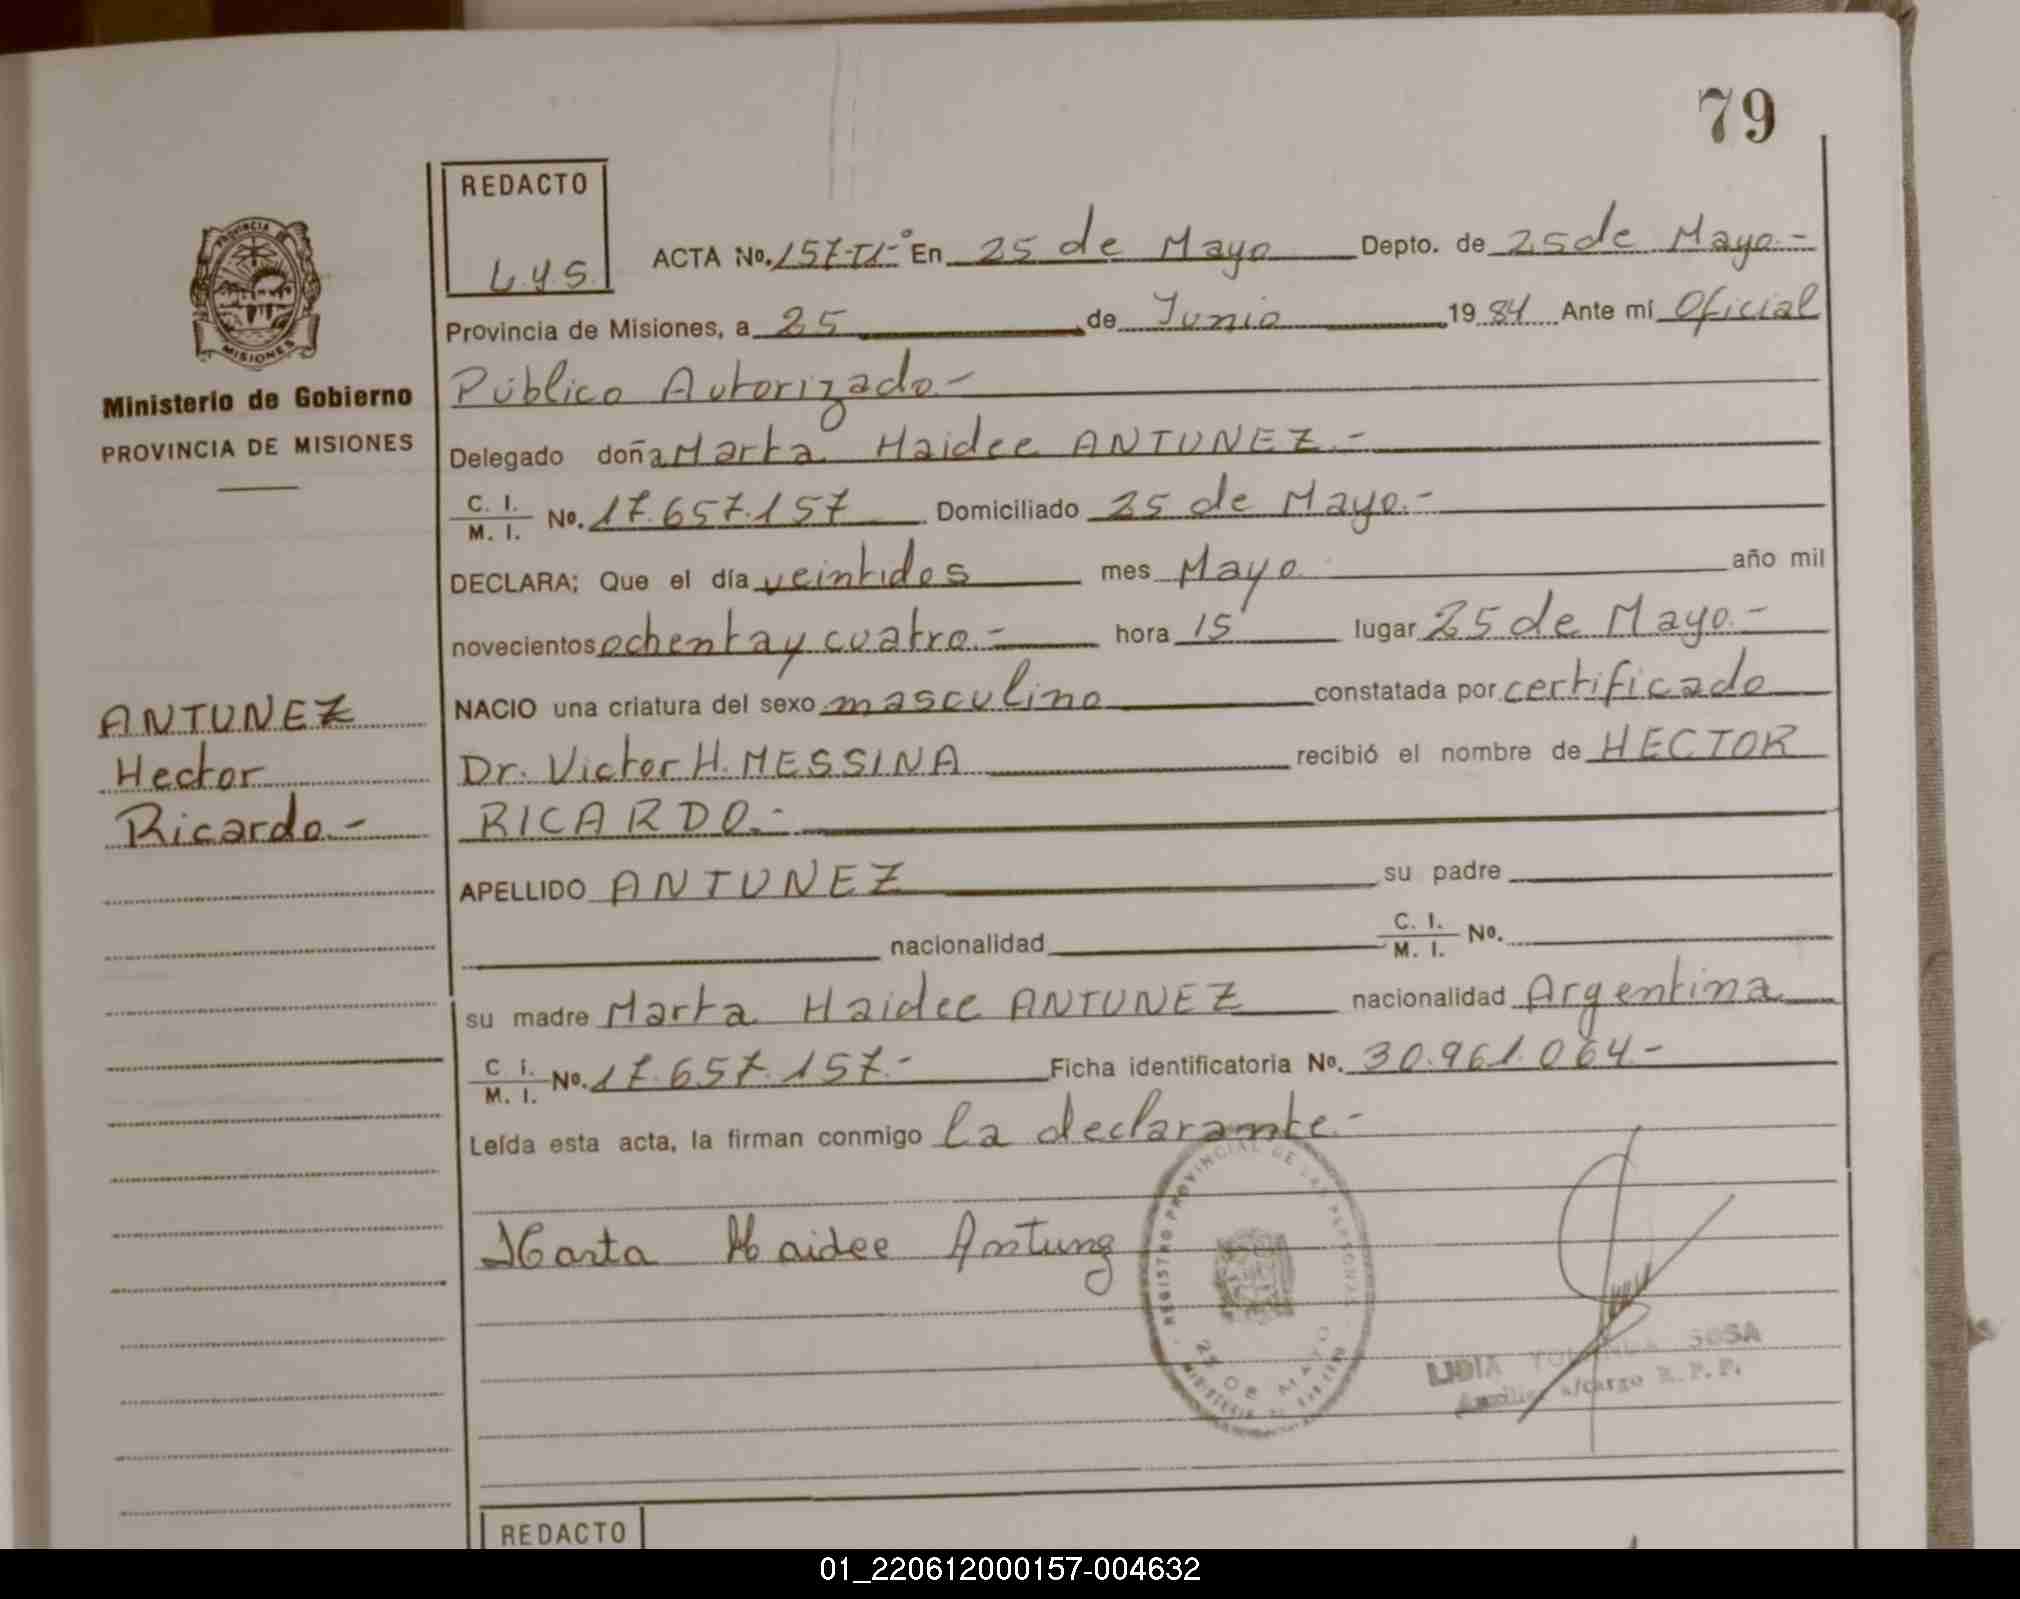 79
REDACTO
L.y.S.
ACTA No. 157-TI-° En 25 de Mayo Depto. de 25 de Mayo.-
Provincia de Misiones, a 25 de Junio 1984 Ante mí Oficial
Público Autorizado.-
Delegado doña Marta Haidee ANTUNEZ.-
C. I. M. I. No. 17.657.157 Domiciliado 25 de Mayo.-
DECLARA; Que el día veintidos mes Mayo año mil
novecientos ochenta y cuatro.- hora 15 lugar 25 de Mayo.-
NACIO una criatura del sexo masculino constatada por certificado
Dr. Victor H. MESSINA recibió el nombre de HECTOR
RICARDO.-
APELLIDO ANTUNEZ su padre
nacionalidad C. I. M. I. No.
su madre Marta Haidee ANTUNEZ nacionalidad Argentina
C. I. M. I. No. 17.657.157.- Ficha identificatoria No. 30.961.064-
Leída esta acta, la firman conmigo la declarante.-
Marta Haidee Antunez
PROVINCIA DE
MISIONES
Ministerio de Gobierno
PROVINCIA DE MISIONES
ANTUNEZ
Hector
Ricardo.-
REGISTRO PROVINCIAL DE LAS PERSONAS
25 DE MAYO
MINISTERIO DE GOBIERNO
LIDIA YOLANDA SOSA
Auxiliar a/cargo R. P. P.
REDACTO
01_220612000157-004632